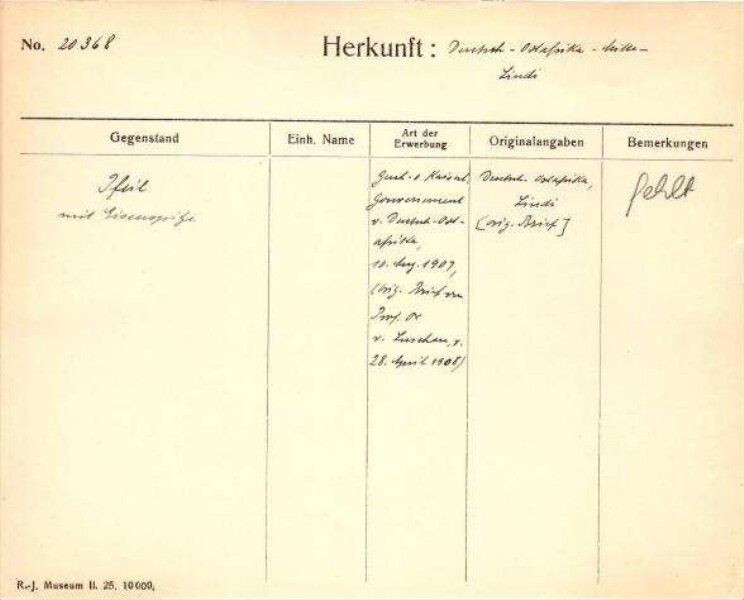 No. 20368
Herkunft: Deutsch-Ostafrika -
Lindi
Gegenstand
Einh. Name
Art der
Erwerbung
Originalangaben
Bemerkungen
Pfeil
mit Eisenspitze
Gesch. v Kaiserl.
Gouvernement
v. Deutsch-Ost-
afrika,
10. Aug. 1907,
(orig. Brief von
Prof. Dr
v. Luschan, v.
28. April 1908)
Deutsch-Ostafrika,
Lindi
[orig. Brief]
fehlt
R.-J. Museum II. 25, 10000,